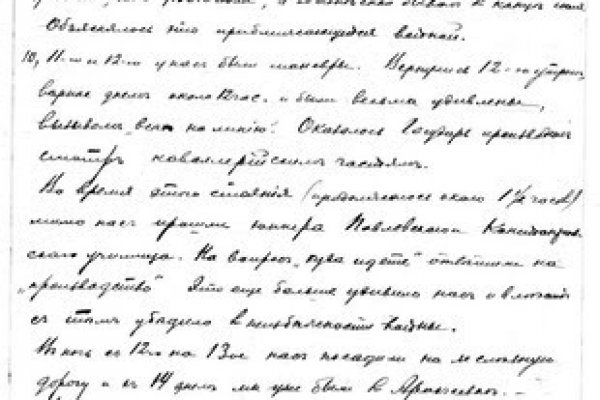 Объяснялось это приближающейся войной.
10, 11-го и 12-го у нас были маневры. Вернулись 12-го утром,
вернее днем около 12 час. и были весьма удивлены,
вызовом „всех на линию“. Оказалось Государь производит
смотр кавалерийским частям.
Во время этого стояния (продолжалось около 1 1/2 часов)
мимо нас прошли юнкера Павловского
ского училища. На вопрос „куда идете“ ответили на
„производство“ Это еще больше удивило нас и вместе
с тем убедило в неизбежности войны.
В ночь с 12-го на 13-ое нас посадили на железную
дорогу и в 14 днем мы уже были в